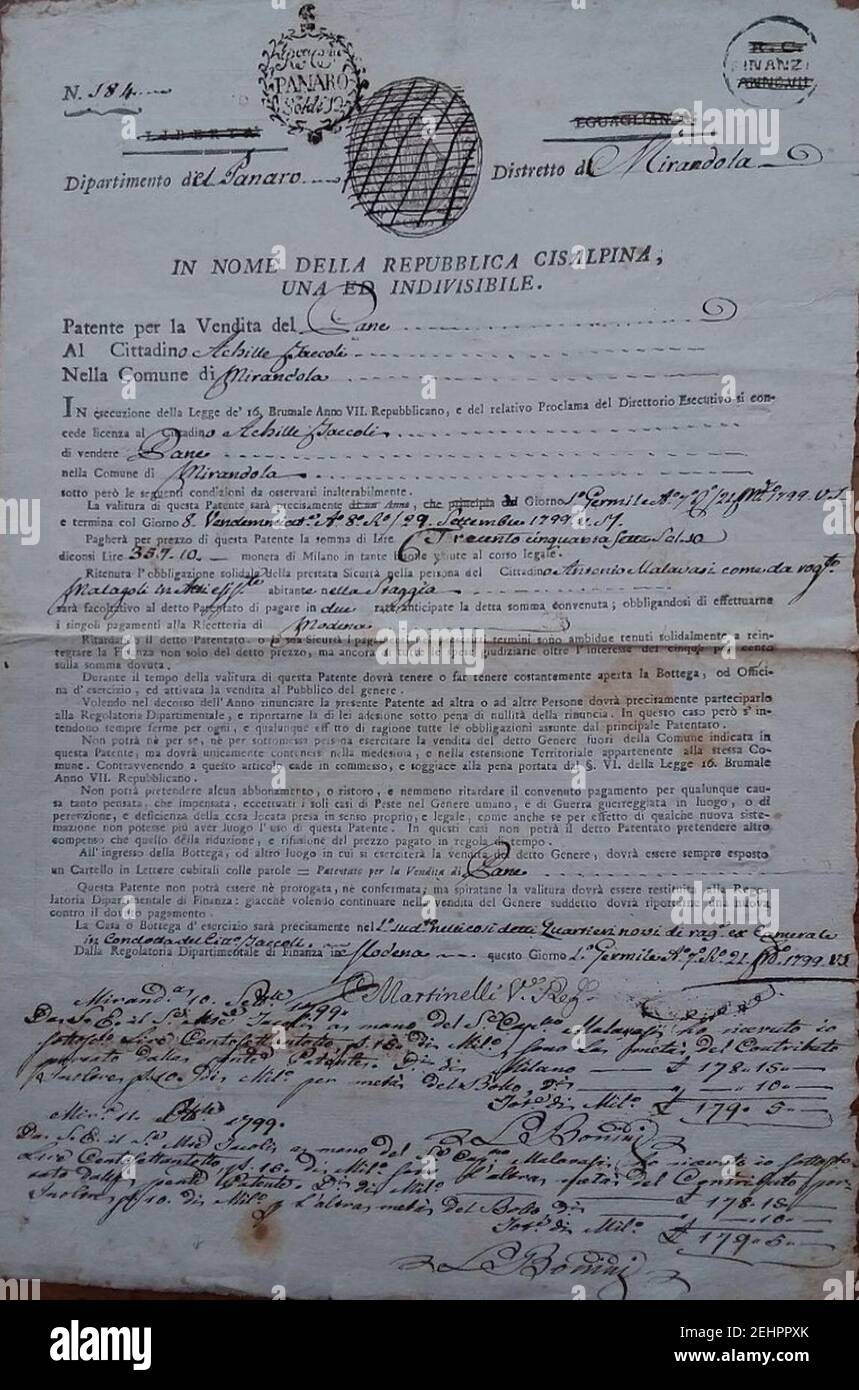 N. 184
PANARO
Soldi 12
R. C.
INANZ
ANNO VII
LIBERTÀ
EGUAGLIAN
Dipartimento del Panaro
Distretto di Mirandola
IN NOME DELLA REPUBBLICA CISALPINA,
UNA ED INDIVISIBILE.
Patente per la Vendita del Pane
Al Cittadino Achille Taccoli
Nella Comune di Mirandola
IN esecuzione della Legge de' 16. Brumale Anno VII. Repubblicano, e del relativo Proclama del Direttorio Esecutivo si con-
cede licenza al Cittadino Achille Taccoli
di vendere Pane
nella Comune di Mirandola
sotto però le seguenti condizioni da osservarsi inalterabilmente.
La valitura di questa Patente sarà precisamente di un Anno, che principia dal Giorno 1º Germile Aº 7º Rº/21 Mzº 1799. V.S.
e termina col Giorno 8. Vendemiatº Aº 8º Rº/29. Settembre 1799. v. st.
Pagherà per prezzo di questa Patente la somma di Lire Trecento cinquanta sette Sol. 10
diconsi Lire 357.10 moneta di Milano in tante buone valute al corso legale.
Ritenuta l'obbligazione solidale della prestata Sicurtà nella persona del Cittadino Antonio Malavasi come da rogº
Malagoli in Atti abitante nella Staggia
sarà facoltativo al detto Patentato di pagare in due rate anticipate la detta somma convenuta; obbligandosi di effettuarne
i singoli pagamenti alla Ricettoria di Modena
Ritardando il detto Patentato, o la sua Sicurtà i pagamenti nei prescritti termini sono ambidue tenuti solidalmente a rein-
tegrare la Finanza non solo del detto prezzo, ma ancora di tutte le spese giudiziarie oltre l'interesse del cinque per cento
sulla somma dovuta.
Durante il tempo della valitura di questa Patente dovrà tenere o far tenere costantemente aperta la Bottega, od Offici-
na d'esercizio, ed attivata la vendita al Pubblico del genere.
Volendo nel decorso dell'Anno rinunciare la presente Patente ad altra o ad altre Persone dovrà precisamente parteciparlo
alla Regolatoria Dipartimentale, e riportarne la di lei adesione sotto pena di nullità della rinuncia. In questo caso però s'in-
tendono sempre ferme per ogni, e qualunque effetto di ragione tutte le obbligazioni assunte dal principale Patentato.
Non potrà nè per se, nè per sottomessa persona esercitare la vendita del detto Genere fuori della Comune indicata in
questa Patente, ma dovrà unicamente contenersi nella medesima, e nella estensione Territoriale appartenente alla stessa Co-
mune. Contravvenendo a questo articolo cade in commesso, e soggiace alla pena portata dal §. VI. della Legge 16. Brumale
Anno VII. Repubblicano.
Non potrà pretendere alcun abbonamento, o ristoro, e nemmeno ritardare il convenuto pagamento per qualunque cau-
sa tanto pensata, che impensata, eccettuati i soli casi di Peste nel Genere umano, e di Guerra guerreggiata in luogo, o di
perenzione, e deficienza della cosa locata presa in senso proprio, e legale, come anche se per effetto di qualche nuova siste-
mazione non potesse più aver luogo l'uso di questa Patente. In questi casi non potrà il detto Patentato pretendere altro
compenso che quello della riduzione, e rifusione del prezzo pagato in regola di tempo.
All'ingresso della Bottega, od altro luogo in cui si eserciterà la vendita del detto Genere, dovrà essere sempre esposto
un Cartello in Lettere cubitali colle parole = Patentato per la Vendita di Pane
Questa Patente non potrà essere nè prorogata, nè confermata; ma spiratane la valitura dovrà essere restituita alla Rego-
latoria Dipartimentale di Finanza: giacchè volendo continuare nella vendita del Genere suddetto dovrà riportarne una nuova
contro il dovuto pagamento.
La Casa o Bottega d'esercizio sarà precisamente nel Iº sudº nelli così detti Quartieri novi di ragº ex Camerale
in Condoda del Cittº Taccoli.
Dalla Regolatoria Dipartimentale di Finanza in Modena questo Giorno 1º Germile Aº 7º Rº 21. Mzº 1799. V.S.
Martinelli Vº Regº
Mirandª 10. 7bre 1799.
Da S. E. il Sº Taccoli a mano del Sº Capnº Malavasi ho ricevuto io
sottosº Lire Centosettantotto s. 15. di Milº sono la metà del Contributo
portato dalla Patente. Dico di Milano £ 178. 15
Inoltre s. 10. di Milº per metà del Bollo Dº 10
Totº di Milº £ 179. 5
L. Bonini
Mirª 11. 1799.
Da S. E. il Sº Taccoli a mano del Sº Capno Malavasi ho ricevuto io sotto
Lire Centosettantotto s. 15. di Milº l'altra metà del Contributo por-
tato dalla Patente. Dico di Milº £ 178. 15
Inoltre s. 10. di Milº l'altra metà del Bollo 10
Totº di Milº £ 179. 5
L. Bonini
alamy
Image ID: 2EHPPXK
www.alamy.com